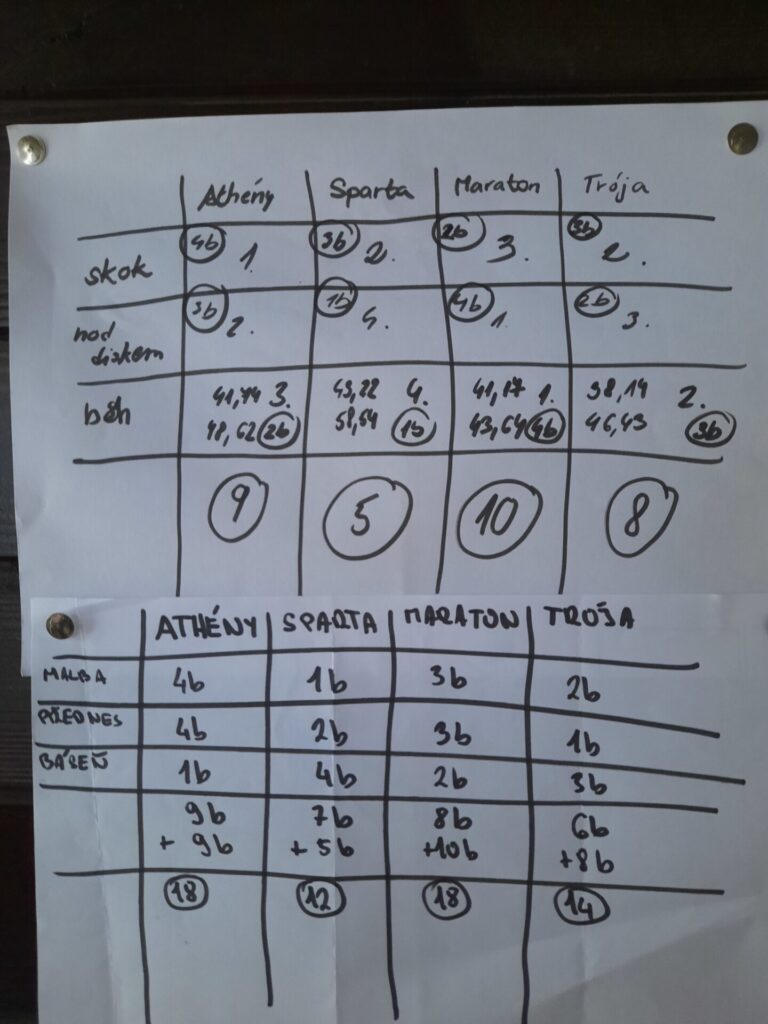 Athény Sparta Maraton Trója
skok 4b 1. 3b 2. 2b 3. 3b 2.
hod diskem 3b 2. 1b 4. 4b 1. 2b 3.
běh 41,74 3. 43,22 4. 41,17 1. 38,14 2.
48,62 2b 58,54 1b 43,64 4b 46,43 3b
9 5 10 8
ATHÉNY SPARTA MARATON TROJA
MALBA 4b 1b 3b 2b
PŘEDNES 4b 2b 3b 1b
BÁSEŇ 1b 4b 2b 3b
9b 7b 8b 6b
+ 9b + 5b +10b +8b
18 12 18 14